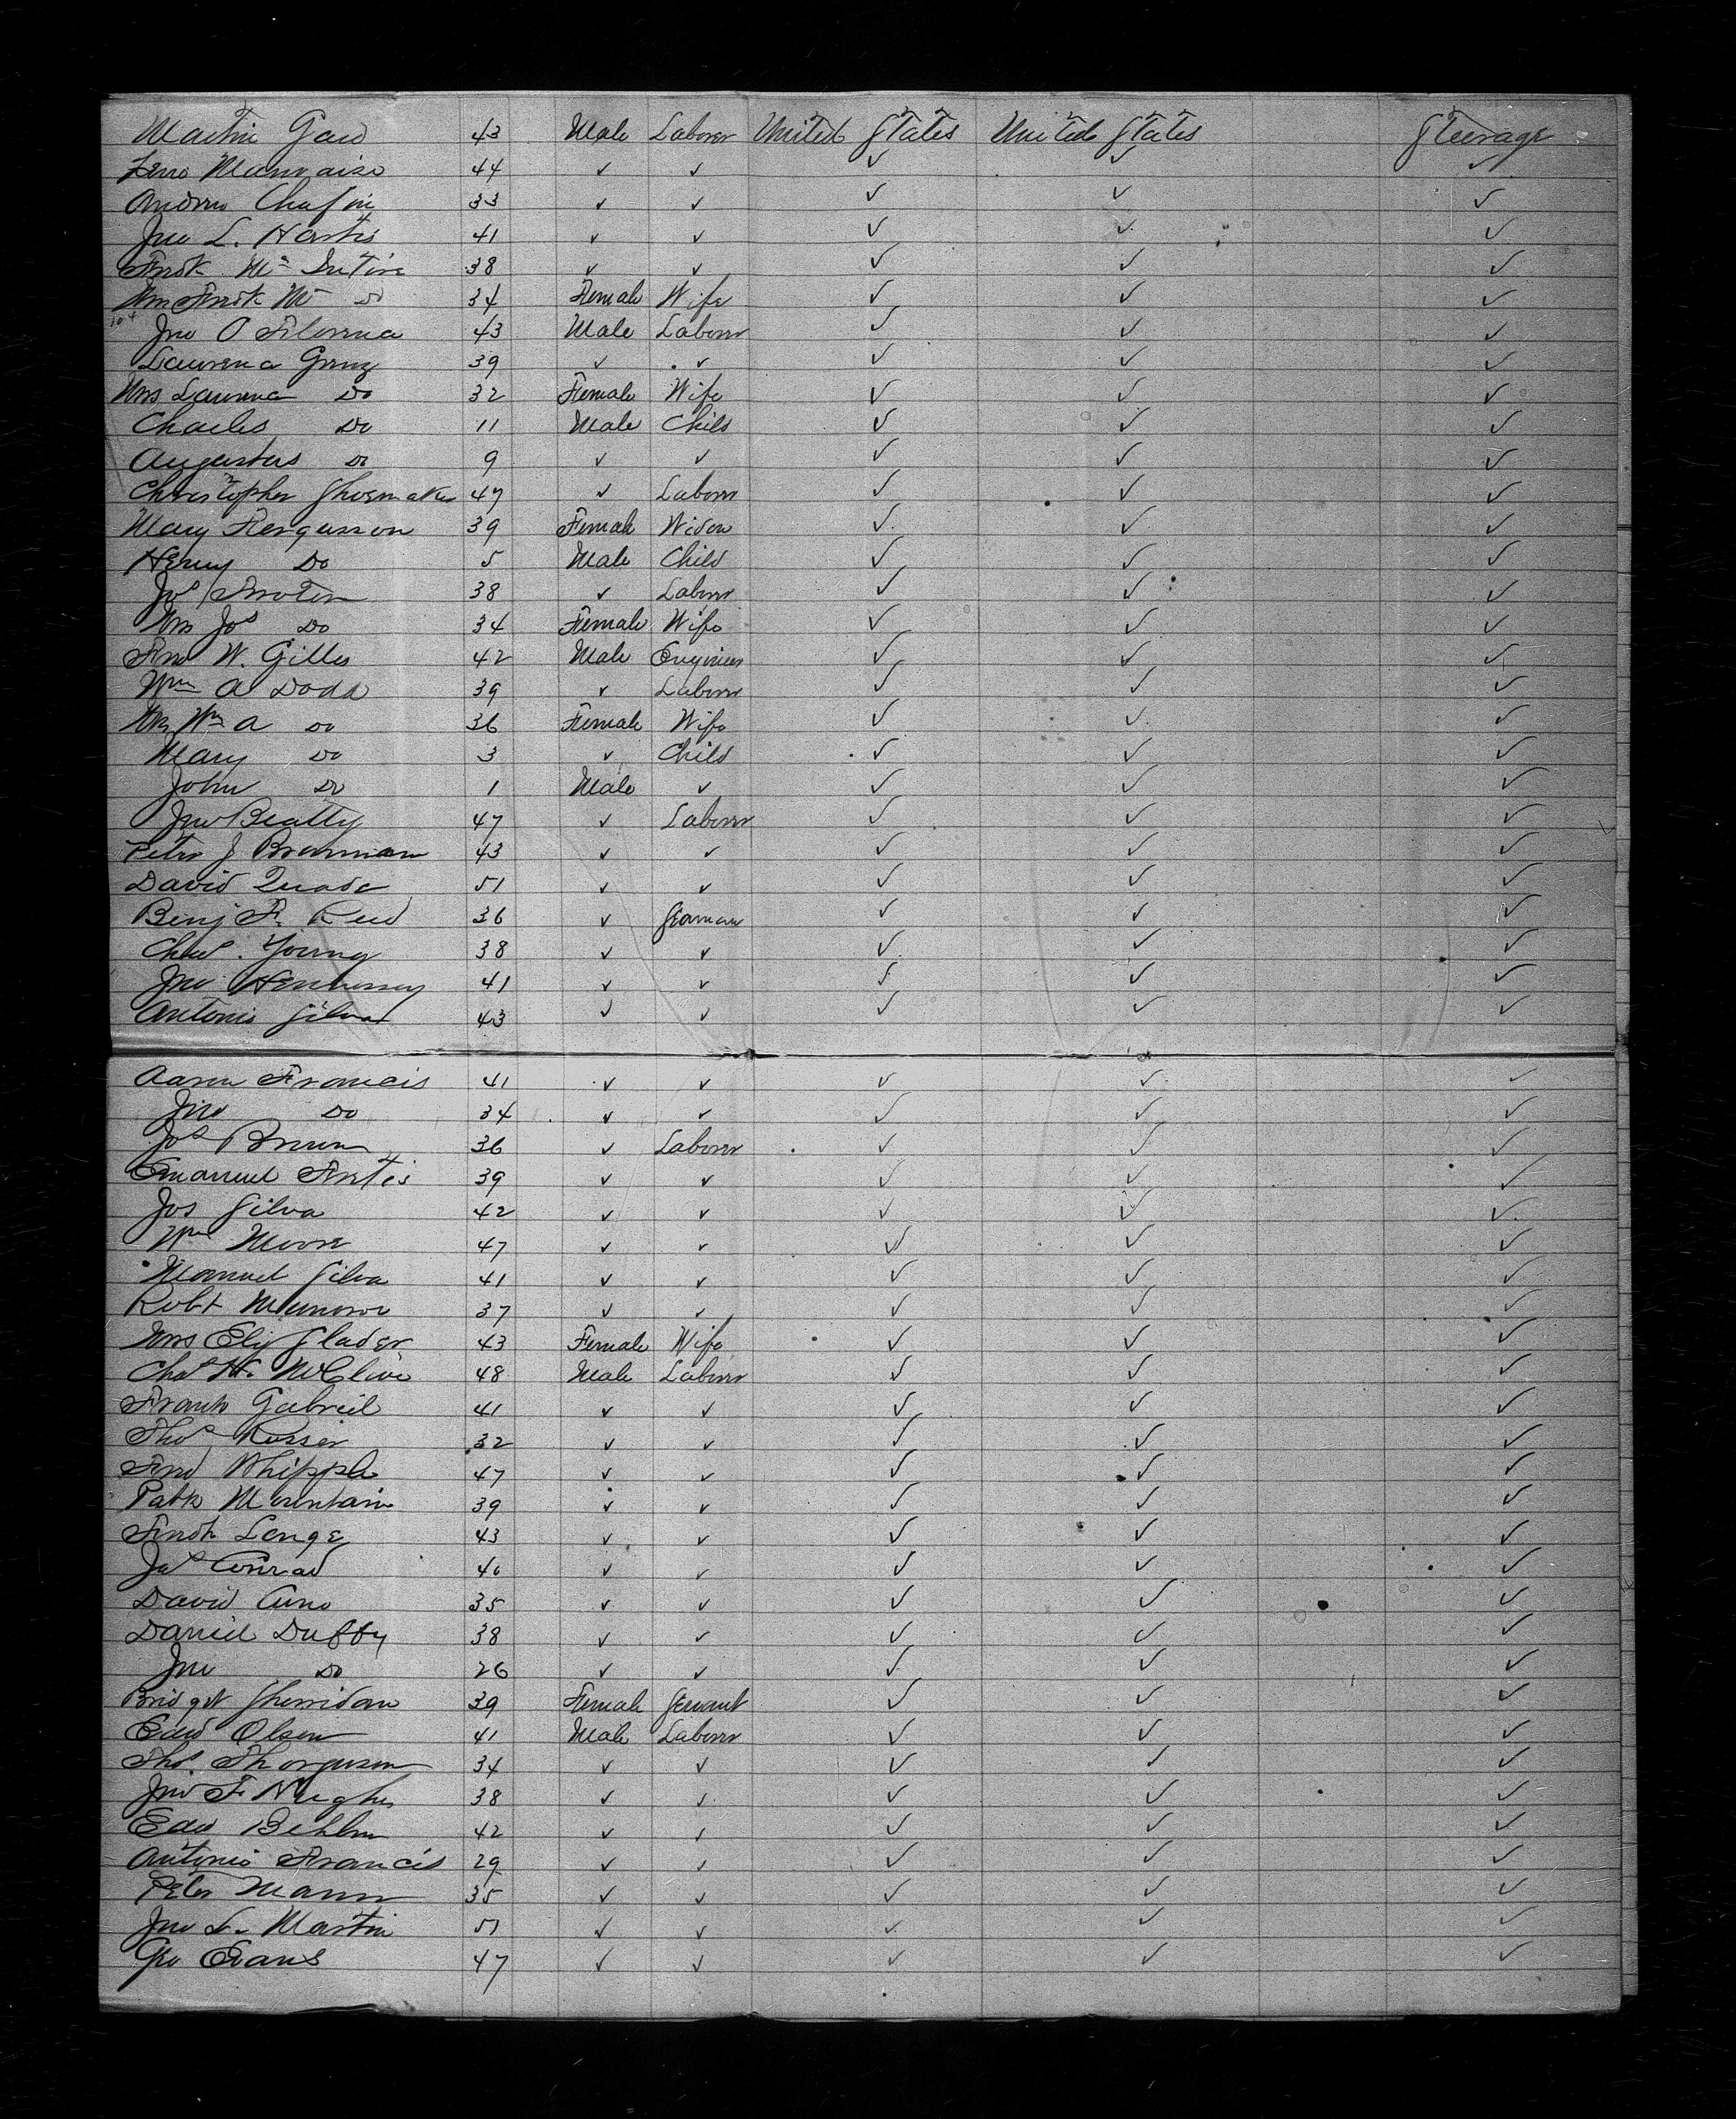 Martin Gaw 43 Male Laborer United States United States Steerage
44 ✓ ✓ ✓ ✓ ✓
Andrew Chafin 33 ✓ ✓ ✓ ✓ ✓
Jno L. Hartis 41 ✓ ✓ ✓ ✓ ✓
Fredk Mc Intire 38 ✓ ✓ ✓ ✓ ✓
Mrs Fredk Mc Do 34 Female Wife ✓ ✓ ✓
Jno O 43 Male Laborer ✓ ✓ ✓
Laurence 39 ✓ ✓ ✓ ✓ ✓
Mrs Laurence Do 32 Female Wife ✓ ✓ ✓
Charles Do 11 Male Child ✓ ✓ ✓
Augustus Do 9 ✓ ✓ ✓ ✓ ✓
Christopher Shoemaker 47 ✓ Laborer ✓ ✓ ✓
Mary Fergusson 39 Female Widow ✓ ✓ ✓
Henry Do 5 Male Child ✓ ✓ ✓
Jos 38 ✓ Laborer ✓ ✓ ✓
Mrs Jos Do 34 Female Wife ✓ ✓ ✓
Fred W. Gilles 42 Male Engineer ✓ ✓ ✓
Wm A Dodd 39 ✓ Laborer ✓ ✓ ✓
Mrs Wm A Do 36 Female Wife ✓ ✓ ✓
Mary Do 3 ✓ Child ✓ ✓ ✓
John Do 1 Male ✓ ✓ ✓ ✓
Jno Beatty 47 ✓ Laborer ✓ ✓ ✓
Peter J Brannan 43 ✓ ✓ ✓ ✓ ✓
David Quade 51 ✓ ✓ ✓ ✓ ✓
Benj F. Reed 36 ✓ Seaman ✓ ✓ ✓
Chas. Young 38 ✓ ✓ ✓ ✓ ✓
Jno Hennessey 41 ✓ ✓ ✓ ✓ ✓
Antonio Silva 43 ✓ ✓ ✓ ✓ ✓
Aaron Francis 41 ✓ ✓ ✓ ✓ ✓
Jno Do 34 ✓ ✓ ✓ ✓ ✓
Jos Brown 36 ✓ Laborer ✓ ✓ ✓
Emanuel 39 ✓ ✓ ✓ ✓ ✓
Jos Silva 42 ✓ ✓ ✓ ✓ ✓
Wm Moore 47 ✓ ✓ ✓ ✓ ✓
Manuel Silva 41 ✓ ✓ ✓ ✓ ✓
Robt Munroe 37 ✓ ✓ ✓ ✓ ✓
Mrs Eliz Slader 43 Female Wife ✓ ✓ ✓
Chas H. McClive 48 Male Laborer ✓ ✓ ✓
Frank Gabriel 41 ✓ ✓ ✓ ✓ ✓
Thos Kusser 32 ✓ ✓ ✓ ✓ ✓
Fred Whipple 47 ✓ ✓ ✓ ✓ ✓
Patk Mountain 39 ✓ ✓ ✓ ✓ ✓
Fredk Lenge 43 ✓ ✓ ✓ ✓ ✓
Jas Conrad 40 ✓ ✓ ✓ ✓ ✓
David 35 ✓ ✓ ✓ ✓ ✓
Daniel Duffy 38 ✓ ✓ ✓ ✓ ✓
Jno Do 26 ✓ ✓ ✓ ✓ ✓
Bridget Sherridan 39 Female Servant ✓ ✓ ✓
Edwd Olsen 41 Male Laborer ✓ ✓ ✓
Thos. Thorguson 34 ✓ ✓ ✓ ✓ ✓
Jno F Hughes 38 ✓ ✓ ✓ ✓ ✓
Edwd Behlen 42 ✓ ✓ ✓ ✓ ✓
Antonio Francis 29 ✓ ✓ ✓ ✓ ✓
Peter Mann 35 ✓ ✓ ✓ ✓ ✓
Jno L. Martin 51 ✓ ✓ ✓ ✓ ✓
Geo Evans 47 ✓ ✓ ✓ ✓ ✓